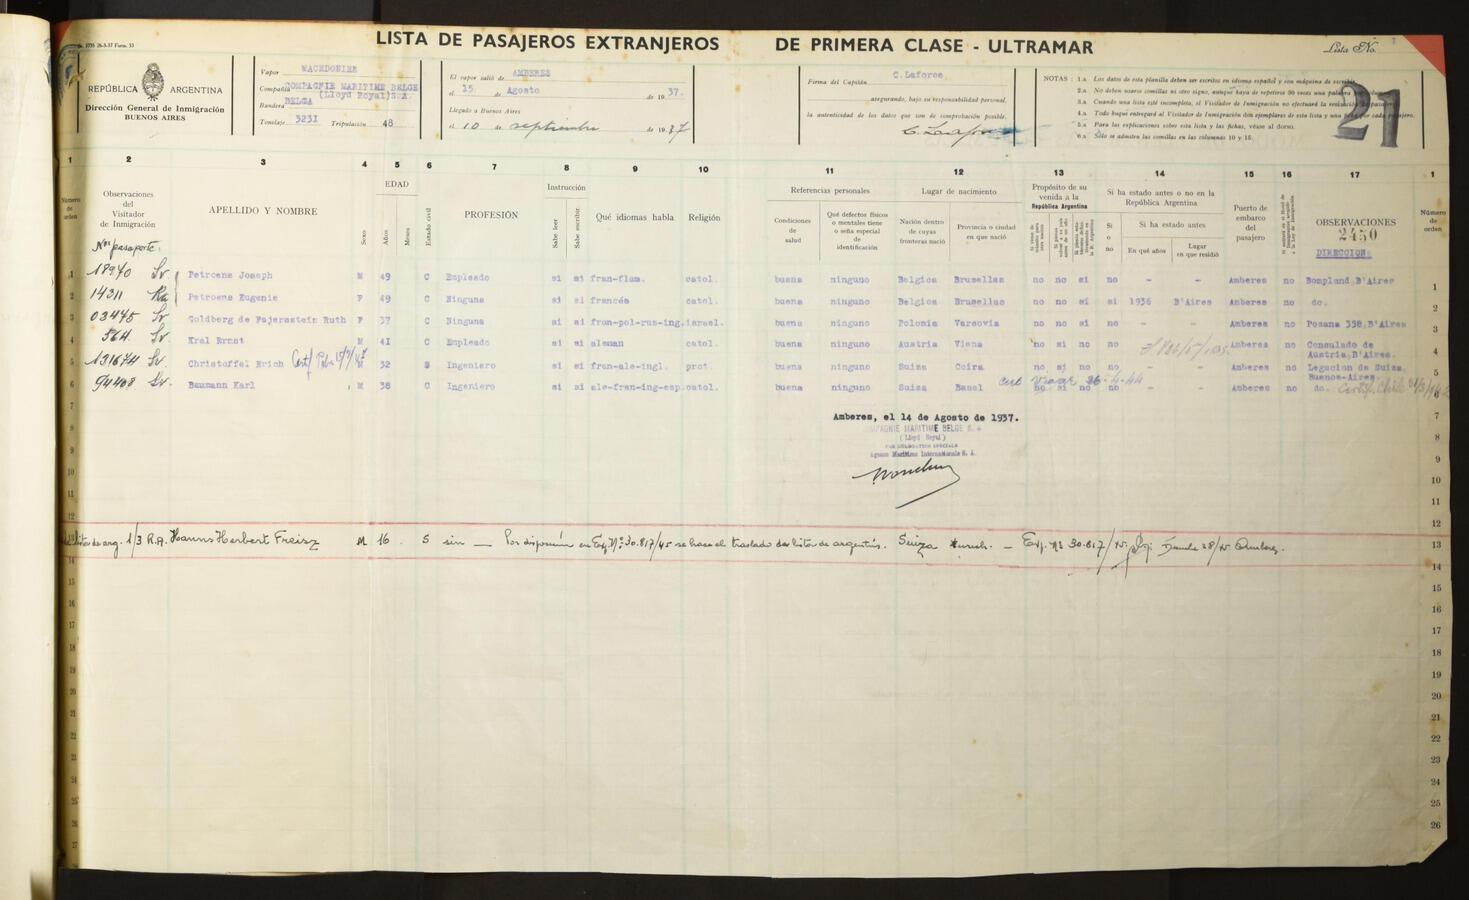 Nr. 3735 26-3-37 Form. 53
LISTA DE PASAJEROS EXTRANJEROS DE PRIMERA CLASE - ULTRAMAR
Lista No.
21
REPÚBLICA ARGENTINA
Dirección General de Inmigración
BUENOS AIRES
Vapor MACEDONIER
Compañía COMPAGNIE MARITIME BELGE
(Lloyd Royal) S.A.
Bandera BELGA
Tonelaje 3231 Tripulación 48
El vapor salió de AMBERES
el 15 de Agosto de 1937.
Llegado a Buenos Aires
el 10 de septiembre de 1937
Firma del Capitán C.Laforce
asegurando, bajo su responsabilidad personal,
la autenticidad de los datos que son de comprobación posible.
NOTAS: 1.a Los datos de esta planilla deben ser escritos en idioma español y con máquina de escribir.
2.a No deben usarse comillas ni otro signo, aunque haya de repetirse 30 veces una palabra
3.a Cuando una lista esté incompleta, el Visitador de Inmigración no efectuará la
4.a Todo buque entregará al Visitador de Inmigración dos ejemplares de esta lista y una por cada pasajero.
5.a Para las explicaciones sobre esta lista y las fichas, véase al dorso.
6.a Sólo se admiten las comillas en las columnas 10 y 15.
1 2 3 4 5 6 7 8 9 10 11 12 13 14 15 16 17 1
Número de orden
Observaciones del Visitador de Inmigración
APELLIDO Y NOMBRE
Sexo
EDAD
Años
Meses
Estado civil
PROFESIÓN
Instrucción
Sabe leer
Sabe escribir
Qué idiomas habla
Religión
Referencias personales
Condiciones de salud
Qué defectos físicos o mentales tiene o seña especial de identificación
Lugar de nacimiento
Nación dentro de cuyas fronteras nació
Provincia o ciudad en que nació
Propósito de su venida a la República Argentina
Si ha estado antes o no en la República Argentina
Sí o no
Si ha estado antes
En qué años
Lugar en que residió
Puerto de embarco del pasajero
OBSERVACIONES
2450
DIRECCION:
Número de orden
Nos pasaporte:
1 18970 Petroens Joseph M 49 C Empleado si si fran-flam. catol. buena ninguno Belgica Bruselas no no si no - - Amberes no Bompland, B'Aires 1
2 14311 Petroens Eugenie F 49 C Ninguna si si francés catol. buena ninguno Belgica Bruselas no no si si 1936 B'Aires Amberes no do. 2
3 03475 Goldberg de Fajersztein Ruth F 37 C Ninguna si si fran-pol-rus-ing. israel. buena ninguno Polonia Varsovia no no si no - - Amberes no Posana 358, B'Aires 3
4 564 Kral Ernst M 41 C Empleado si si aleman catol. buena ninguno Austria Viena no si no no Amberes no Consulado de Austria, B'Aires. 4
5 131674 Christoffel Erich M 32 S Ingeniero si si fran-ale-ingl. prot. buena ninguno Suiza Coira no si no no - - Amberes no Legacion de Suiza, Buenos-Aires. 5
6 94408 Baumann Karl M 38 C Ingeniero si si ale-fran-ing-esp. catol. buena ninguno Suiza Basel no si no no - - Amberes no do. 6
26-4-44
Amberes, el 14 de Agosto de 1937.
COMPAGNIE MARITIME BELGE S. A.
(Lloyd Royal)
PAR DELEGATION SPECIALE
Agence Maritime Internationale S. A.
7
8
9
10
11
12
13 lista de arg. 1/3 R.A. Hanns Herbert Freisz M 16 S sin — Por disposición en Exp. Nº 30.817/45 se hace el traslado de lista de argentinos. Suiza — Exp. Nº 30.817/45 13
14
15
16
17
18
19
20
21
22
23
24
25
26
27